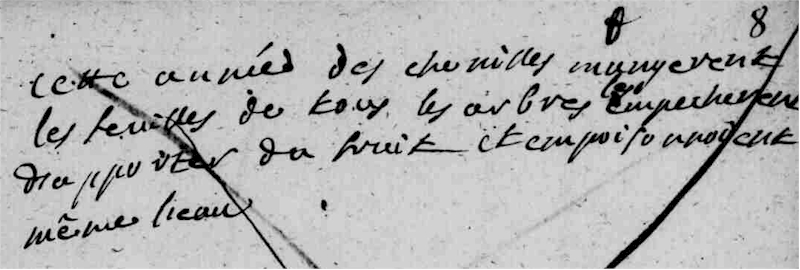 8
cette année des chenilles mangerent
les feuilles de tous les arbres les empecherent
d'apporter du fruit et empoisonnoient
même l'eau